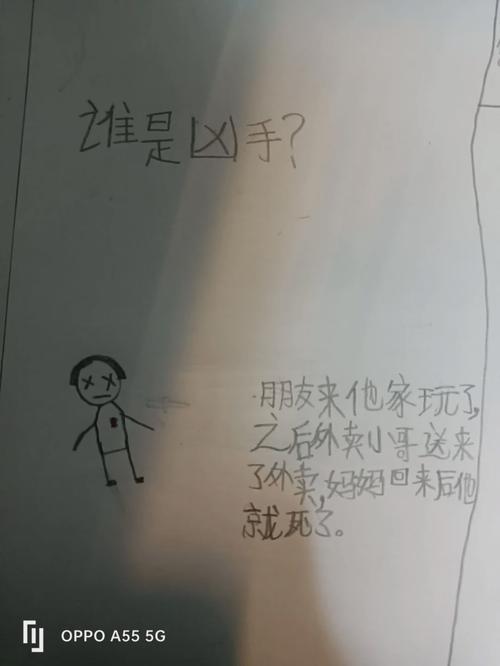 谁是凶手?
·朋友来他家玩了,
之后外卖小哥送来
了外卖,妈妈回来后他
就死了。
OPPO A55 5G